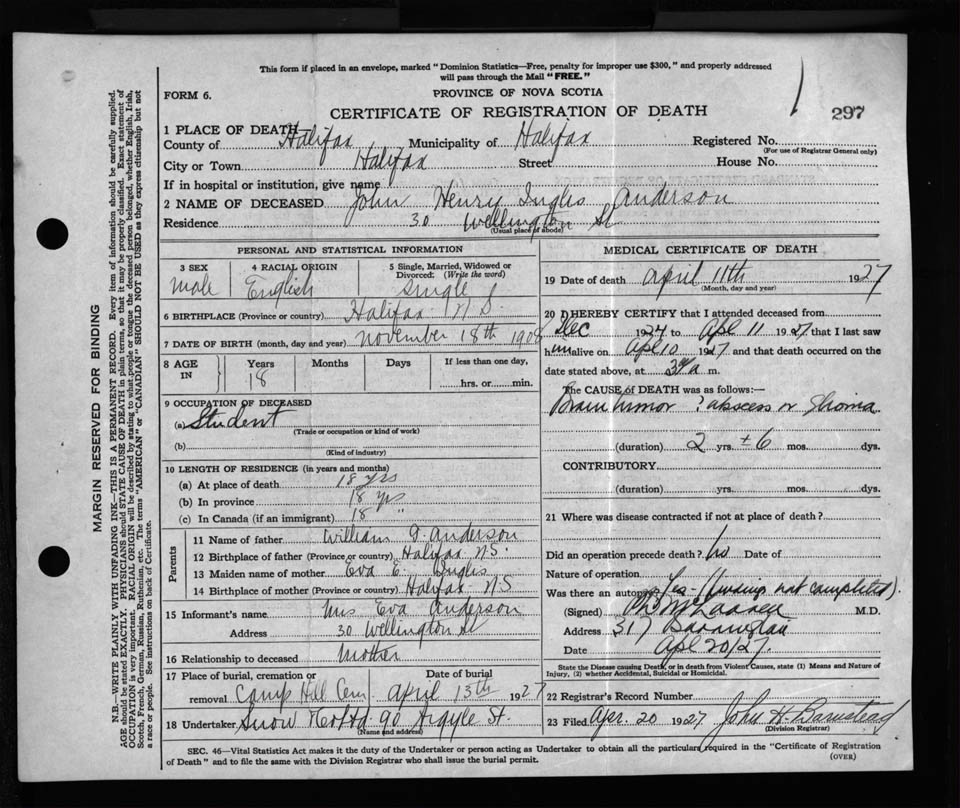 This form if placed in an envelope, marked "Dominion Statistics—Free, penalty for improper use $300," and properly addressed
will pass through the Mail "FREE."
FORM 6.
PROVINCE OF NOVA SCOTIA
CERTIFICATE OF REGISTRATION OF DEATH
297
1 PLACE OF DEATH
County of Halifax Municipality of Halifax Registered No.
(For use of Registrar General only)
City or Town Halifax Street House No.
If in hospital or institution, give name
2 NAME OF DECEASED John Henry Inglis Anderson
Residence 30 Wellington St
(Usual place of abode)
PERSONAL AND STATISTICAL INFORMATION
3 SEX 4 RACIAL ORIGIN 5 Single, Married, Widowed or
Divorced: (Write the word)
Male English Single
6 BIRTHPLACE (Province or country) Halifax N S.
7 DATE OF BIRTH (month, day and year) November 18th 1908
8 AGE IN Years Months Days If less than one day,
18 hrs. or min.
9 OCCUPATION OF DECEASED
(a) Student
(Trade or occupation or kind of work)
(b)
(Kind of industry)
10 LENGTH OF RESIDENCE (in years and months)
(a) At place of death 18 yrs
(b) In province 18 yrs
(c) In Canada (if an immigrant) 18 "
Parents
11 Name of father William G. Anderson
12 Birthplace of father (Province or country) Halifax N.S.
13 Maiden name of mother Eva E. Inglis
14 Birthplace of mother (Province or country) Halifax, N S
15 Informant's name Mrs Eva Anderson
Address 30 Wellington St
16 Relationship to deceased Mother
17 Place of burial, cremation or Date of burial
removal Camp Hill Cem. April 13th 1927
18 Undertaker Snow & Co Ltd 90 Argyle St.
(Name and address)
MEDICAL CERTIFICATE OF DEATH
19 Date of death April 11th 1927
(Month, day and year)
20 I HEREBY CERTIFY that I attended deceased from
Dec 1924 to Apl 11 1927 that I last saw
him alive on Apl 10 1927 and that death occurred on the
date stated above, at a m.
The CAUSE of DEATH was as follows:—
Brain tumor ? abscess or glioma
(duration) 2 yrs. ± 6 mos. dys.
CONTRIBUTORY
(duration) yrs. mos. dys.
21 Where was disease contracted if not at place of death?
Did an operation precede death? No Date of
Nature of operation
Was there an autopsy Yes - (findings not completed).
(Signed) M.D.
Address 317 Barrington
Date Apl 20/27.
State the Disease causing Death, or in death from Violent Causes, state (1) Means and Nature of
Injury, (2) whether Accidental, Suicidal or Homicidal.
22 Registrar's Record Number
23 Filed Apr. 20 1927 John H. Barnstead
(Division Registrar)
SEC. 46—Vital Statistics Act makes it the duty of the Undertaker or person acting as Undertaker to obtain all the particulars required in the "Certificate of Registration
of Death" and to file the same with the Division Registrar who shall issue the burial permit.
(OVER)
MARGIN RESERVED FOR BINDING
N.B.—WRITE PLAINLY, WITH UNFADING INK—THIS IS A PERMANENT RECORD. Every item of information should be carefully supplied.
AGE should be stated EXACTLY. PHYSICIANS should STATE CAUSE OF DEATH in plain terms, so that it may be properly classified. Exact statement of
OCCUPATION is very important. RACIAL ORIGIN will be described by stating to what people or tongue the deceased person belonged, whether English, Irish,
Scotch, French, German, Russian, Ruthenian, etc. The terms "AMERICAN" or "CANADIAN" SHOULD NOT BE USED as they express citizenship but not
a race or people. See instructions on back of Certificate.